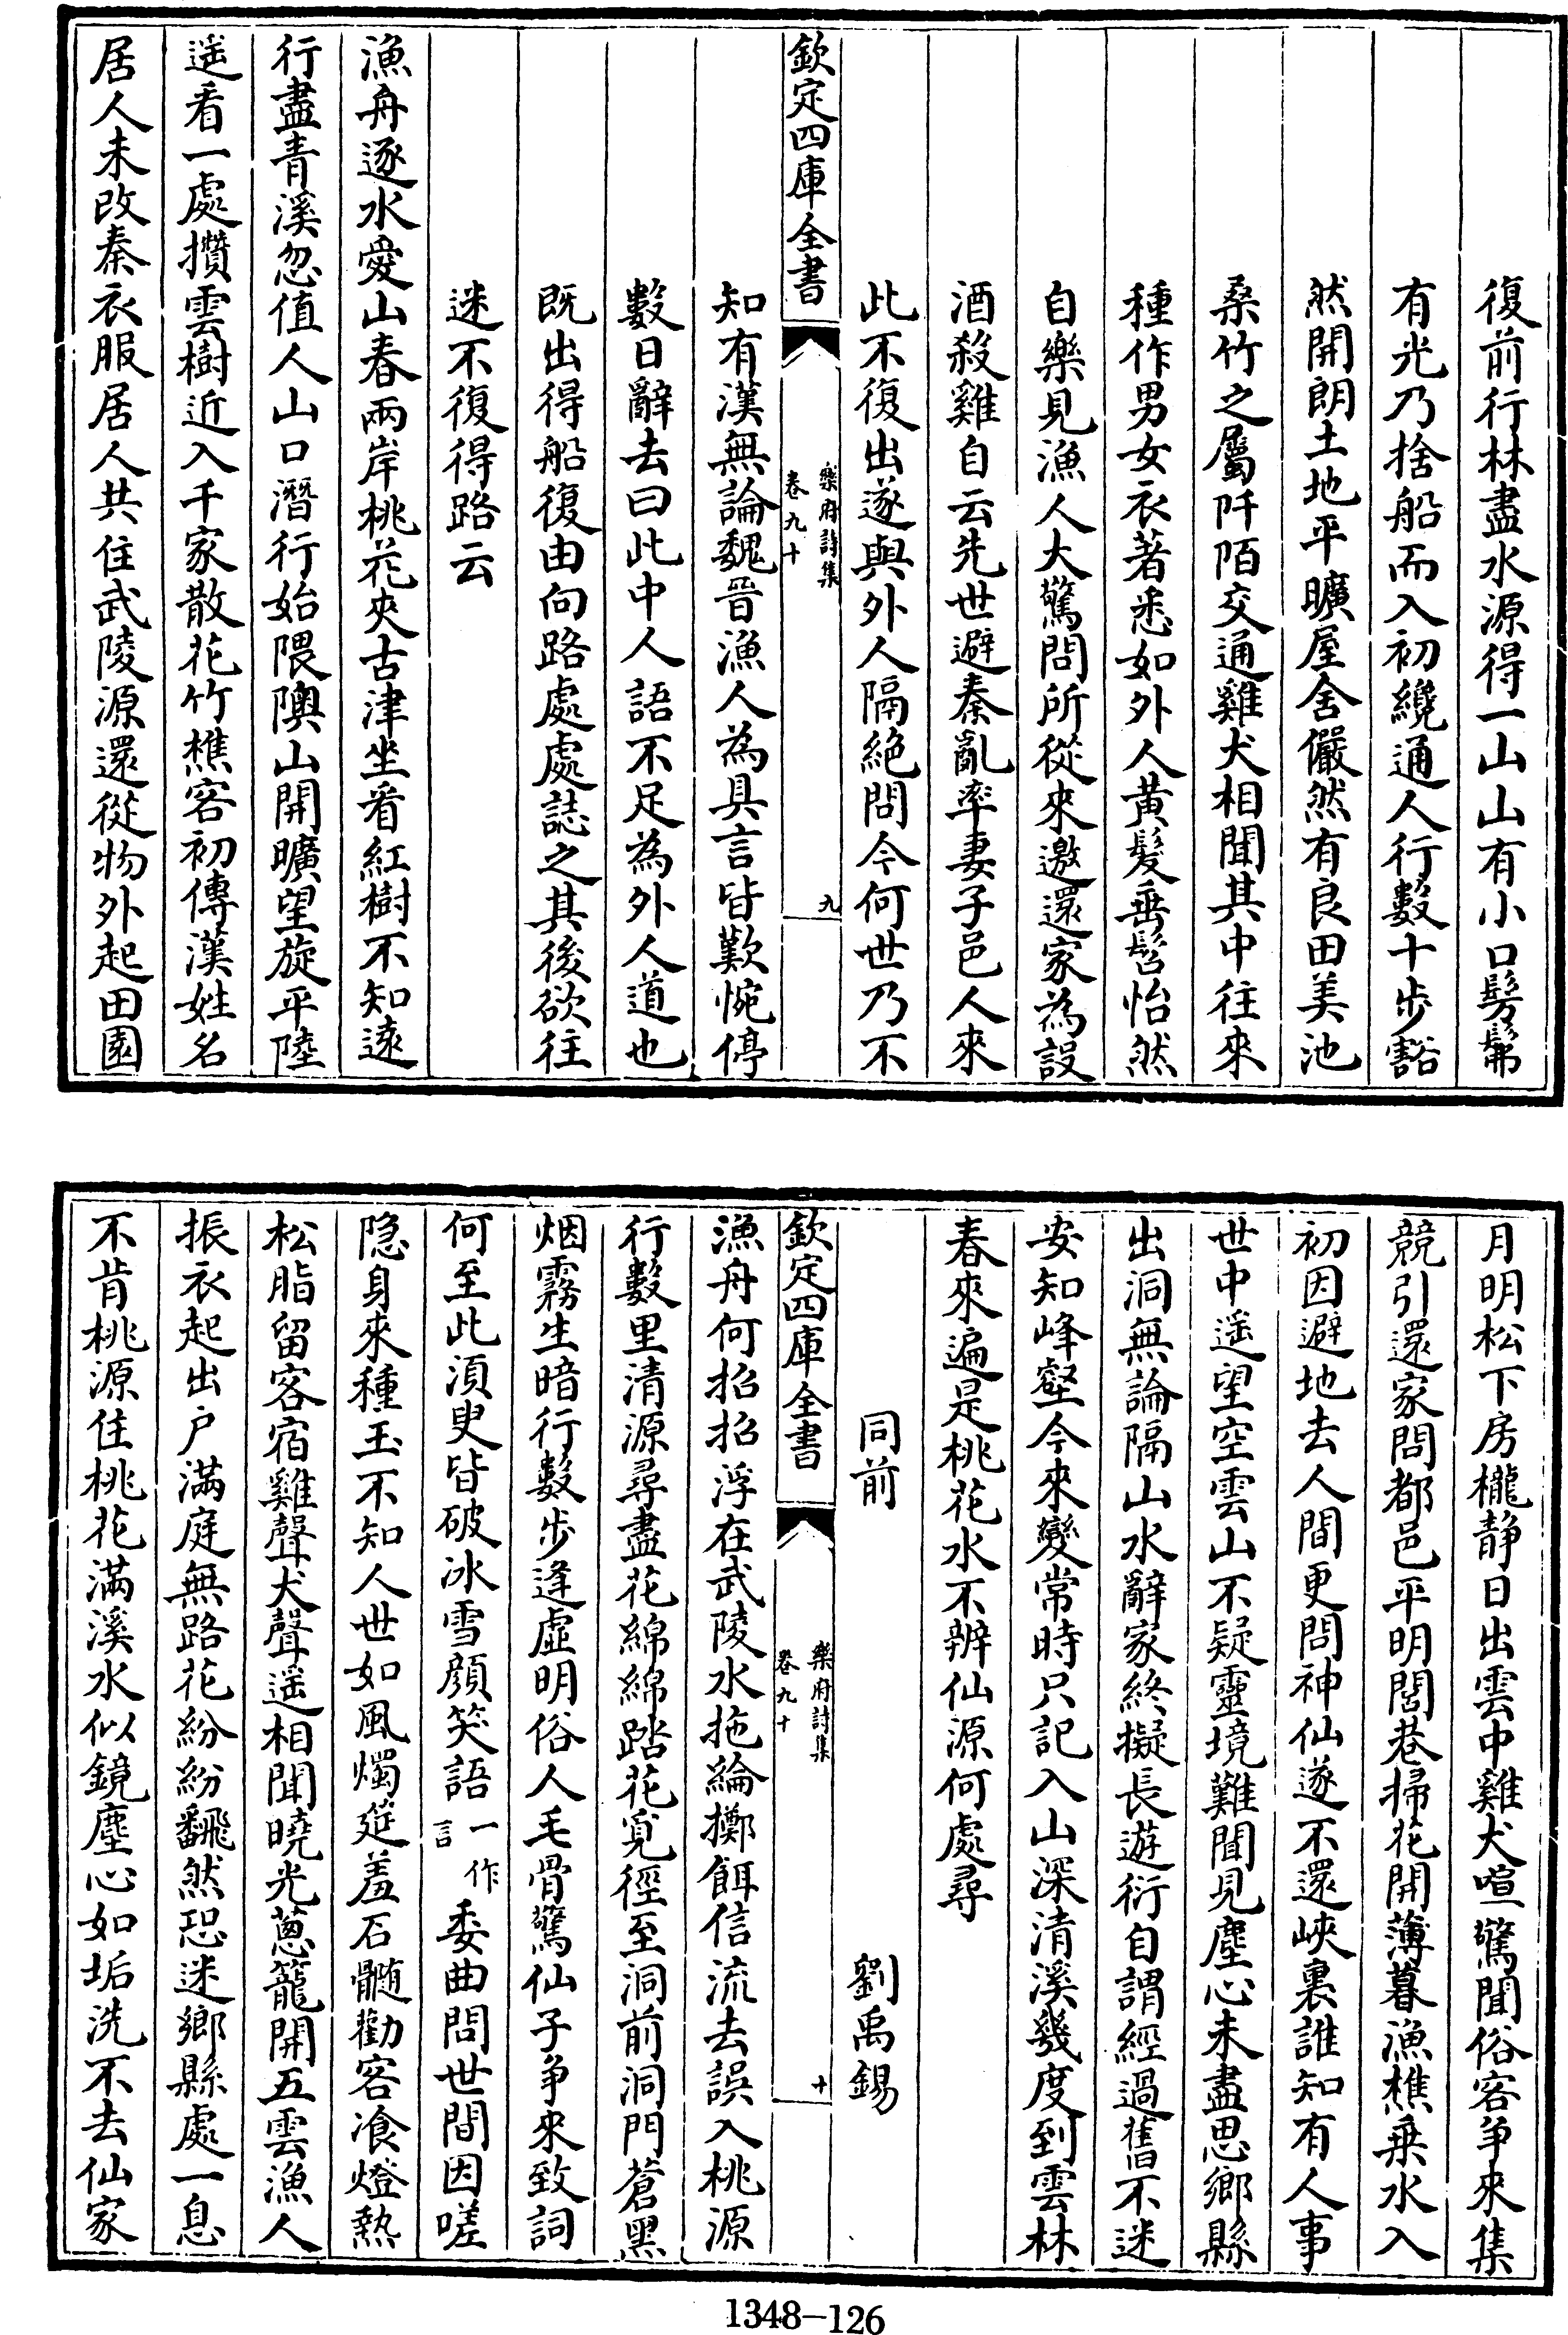 復前行林盡水源得一山山有小口髣髴
有光乃捨船而入初纔通人行數十步豁
然開朗土地平曠屋舍儼然有良田美池
桑竹之屬阡陌交通雞犬相聞其中往來
種作男女衣著悉如外人黃髮垂髫怡然
自樂見漁人大驚問所從來邀還家為設
酒殺雞自云先世避秦亂率妻子邑人來
此不復出遂與外人隔絶問今何世乃不
欽定四庫全書
樂府詩集
卷九十
九
知有漢無論魏晉漁人為具言皆歎惋停
數日辭去曰此中人語不足為外人道也
既出得船復由向路處處誌之其後欲往
迷不復得路云
漁舟逐水愛山春兩岸桃花夾古津坐看紅樹不知遠
行盡青溪忽值人山口潛行始隈隩山開曠望旋平陸
遥看一處攢雲樹近入千家散花竹樵客初傳漢姓名
居人未改秦衣服居人共住武陵源還從物外起田園
月明松下房櫳静日出雲中雞犬喧驚聞俗客爭來集
競引還家問都邑平明閭巷掃花開薄暮漁樵乘水入
初因避地去人間更問神仙遂不還峽裏誰知有人事
世中遥望空雲山不疑靈境難聞見塵心未盡思鄉縣
出洞無論隔山水辭家終擬長遊衍自謂經過舊不迷
安知峰壑今來變常時只記入山深清溪幾度到雲林
春來遍是桃花水不辨仙源何處尋
同前 劉禹錫
欽定四庫全書
樂府詩集
卷九十
十
漁舟何招招浮在武陵水拖綸擲餌信流去誤入桃源
行數里清源尋盡花綿綿踏花覓徑至洞前洞門蒼黑
烟霧生暗行數步逢虛明俗人毛骨驚仙子爭來致詞
何至此須臾皆破冰雪顏笑語一作言委曲問世間因嗟
隐身來種玉不知人世如風燭筵羞石髓勸客飡燈熱
松脂留客宿雞聲犬聲遥相聞曉光蔥籠開五雲漁人
振衣起出户滿庭無路花紛紛飜然恐迷鄉縣處一息
不肯桃源住桃花滿溪水似鏡塵心如垢洗不去仙家
1348-126